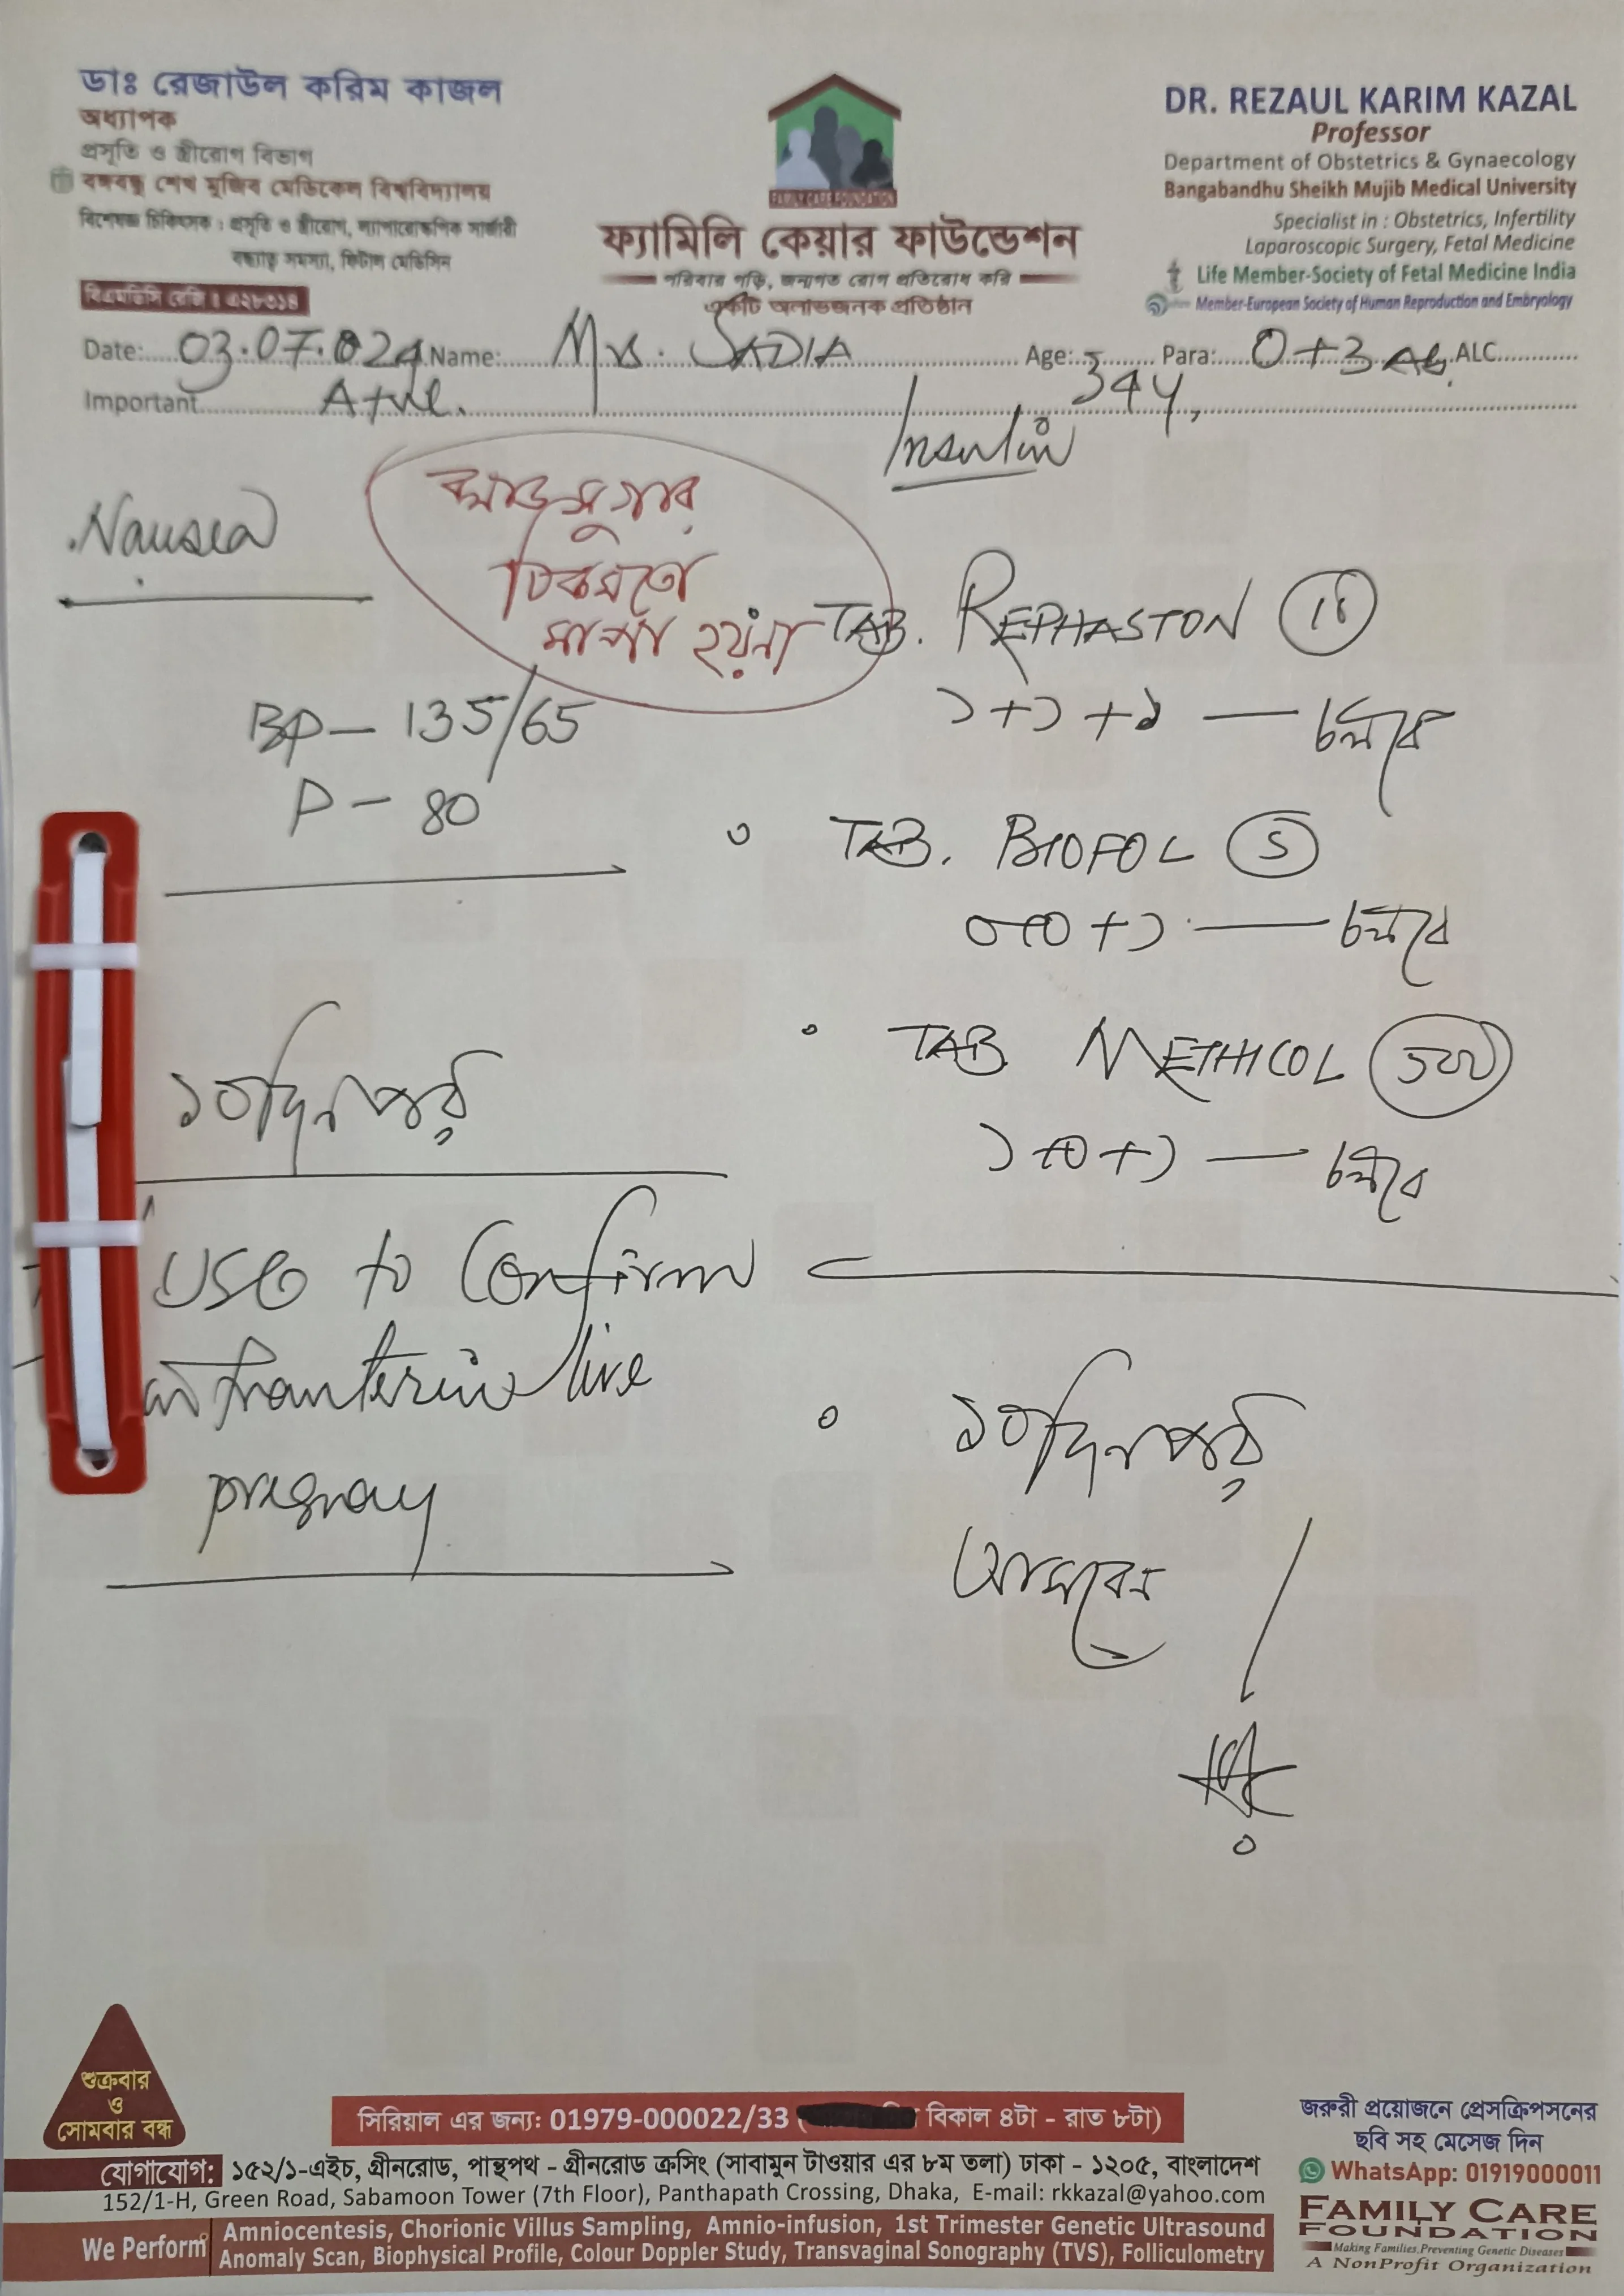 ডাঃ রেজাউল করিম কাজল
অধ্যাপক
প্রসূতি ও স্ত্রীরোগ বিভাগ
বঙ্গবন্ধু শেখ মুজিব মেডিকেল বিশ্ববিদ্যালয়
বিশেষজ্ঞ চিকিৎসক : প্রসূতি ও স্ত্রীরোগ, ল্যাপারোস্কপিক সার্জারী
বন্ধ্যাত্ব সমস্যা, ফিটাল মেডিসিন
বিএমডিসি রেজি : এ২৮৩১৪
FAMILY CARE FOUNDATION
ফ্যামিলি কেয়ার ফাউন্ডেশন
পরিবার গড়ি, জন্মগত রোগ প্রতিরোধ করি
একটি অলাভজনক প্রতিষ্ঠান
DR. REZAUL KARIM KAZAL
Professor
Department of Obstetrics & Gynaecology
Bangabandhu Sheikh Mujib Medical University
Specialist in : Obstetrics, Infertility
Laparoscopic Surgery, Fetal Medicine
Life Member-Society of Fetal Medicine India
Member-European Society of Human Reproduction and Embryology
Date: 03.07.024 Name: Mrs. SADIA Age: 34y, Para: 0+3 Ab. ALC
Important A+ve.
Insulin
Nausea
ব্লাড সুগার
ঠিকমতো
মাপা হয়না
BP - 135/65
P - 80
TAB. REPHASTON
১+১+১ — চলবে
TAB. BIOFOL 5
০+০+১ — চলবে
TAB METHICOL 500
১+০+১ — চলবে
১০ দিন পর
USG to Confirm
intrauterine live
pregnancy
১০ দিন পর
আসবেন
শুক্রবার
ও
সোমবার বন্ধ
সিরিয়াল এর জন্য: 01979-000022/33 ( বিকাল ৪টা - রাত ৮টা)
যোগাযোগ: ১৫২/১-এইচ, গ্রীনরোড, পান্থপথ - গ্রীনরোড ক্রসিং (সাবামুন টাওয়ার এর ৮ম তলা) ঢাকা - ১২০৫, বাংলাদেশ
152/1-H, Green Road, Sabamoon Tower (7th Floor), Panthapath Crossing, Dhaka, E-mail: rkkazal@yahoo.com
We Perform Amniocentesis, Chorionic Villus Sampling, Amnio-infusion, 1st Trimester Genetic Ultrasound
Anomaly Scan, Biophysical Profile, Colour Doppler Study, Transvaginal Sonography (TVS), Folliculometry
জরুরী প্রয়োজনে প্রেসক্রিপসনের
ছবি সহ মেসেজ দিন
WhatsApp: 01919000011
FAMILY CARE
FOUNDATION
Making Families, Preventing Genetic Diseases
A NonProfit Organization